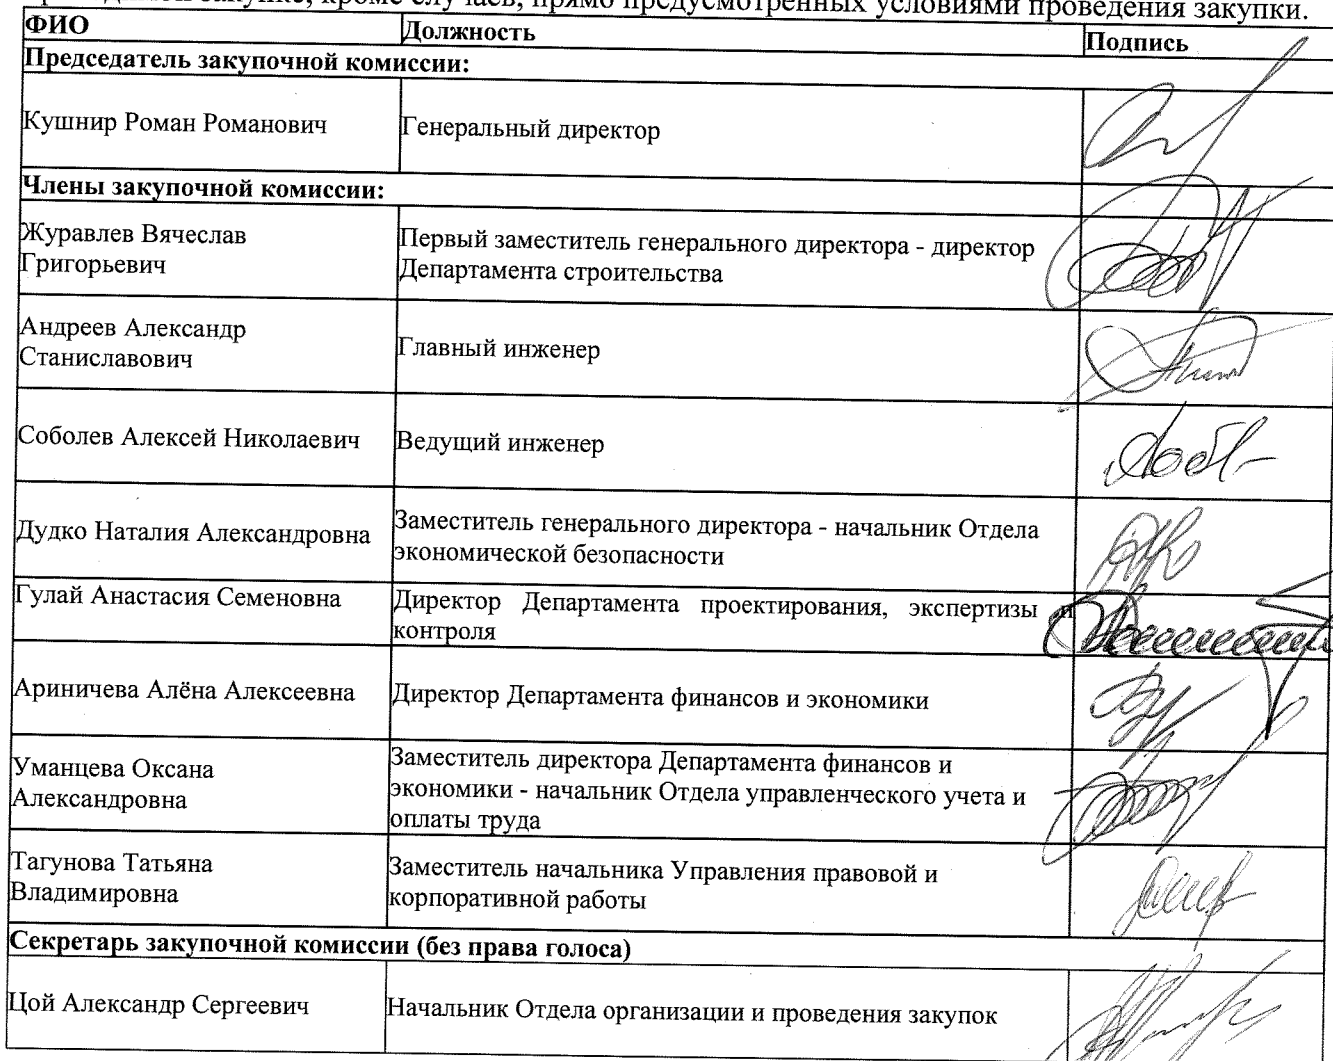 закупке, кроме случаев, прямо предусмотренных условиями проведения закупки.
ФИО Должность Подпись
Председатель закупочной комиссии:
Кушнир Роман Романович Генеральный директор
Члены закупочной комиссии:
Журавлев Вячеслав
Григорьевич
Первый заместитель генерального директора - директор
Департамента строительства
Андреев Александр
Станиславович
Главный инженер
Соболев Алексей Николаевич Ведущий инженер
Дудко Наталия Александровна
Заместитель генерального директора - начальник Отдела
экономической безопасности
Гулай Анастасия Семеновна
Директор Департамента проектирования, экспертизы и
контроля
Ариничева Алёна Алексеевна Директор Департамента финансов и экономики
Уманцева Оксана
Александровна
Заместитель директора Департамента финансов и
экономики - начальник Отдела управленческого учета и
оплаты труда
Тагунова Татьяна
Владимировна
Заместитель начальника Управления правовой и
корпоративной работы
Секретарь закупочной комиссии (без права голоса)
Цой Александр Сергеевич Начальник Отдела организации и проведения закупок